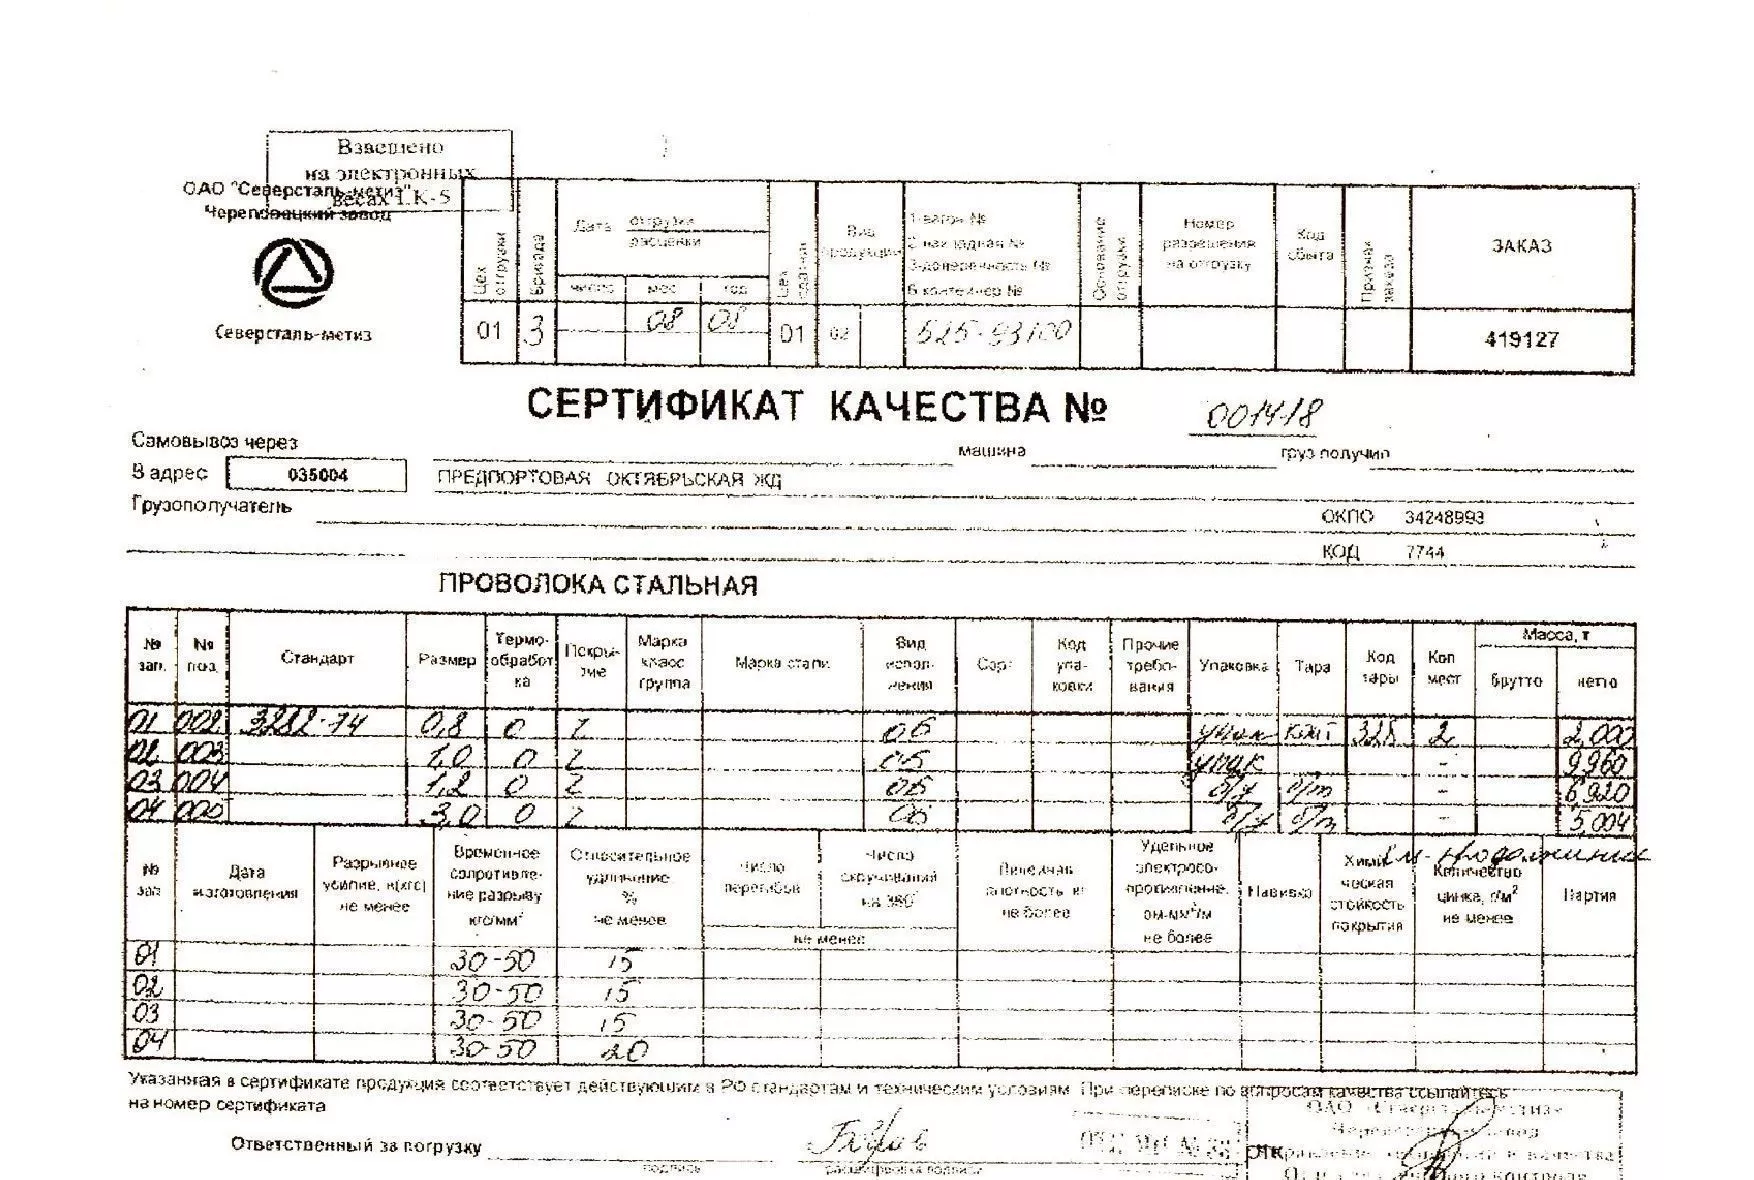 Взвешено
на электронных
весах
ОАО "Северсталь-метиз"
Череповецкий завод
Северсталь-метиз
Цех отгрузки
Бригада
Дата
отгрузки
расценки
число мес год
Вид продукции
1-вагон №
2-накладная №
3-доверенность №
6 контейнер №
Основание отгрузки
Номер разрешения на отгрузку
Код сбыта
Признак заказа
ЗАКАЗ
01 3 08 08 01 02 525-93100 419127
СЕРТИФИКАТ КАЧЕСТВА № 001418
Самовывоз через машина груз получил
В адрес 035004 ПРЕДПОРТОВАЯ ОКТЯБРЬСКАЯ ЖД
Грузополучатель ОКПО 34248993
КОД 7744
ПРОВОЛОКА СТАЛЬНАЯ
№ зап. № поз. Стандарт Размер Термо-обработ ка Покры-тие Марка класс группа Марка стали Вид испол-нения Сорт Код упа-ковки Прочие требо-вания Упаковка Тара Код тары Кол мест Масса, т брутто нетто
01 002 3282-74 0,8 0 2 06 упак 2 2,000
02 003 1,0 0 2 06 упак - 9,960
03 004 1,2 0 2 06 б/у - 6,920
04 3,0 0 2 06 б/у - 5,004
№ зап Дата изготовления Разрывное усилие, н(кгс) не менее Временное сопротивле-ние разрыву кгс/мм² Относительное удлинение, % не менее Число перегибов Число скручиваний на 360° не менее Удельное электросо-противление, ом·мм²/м не более Навивка Хими-ческая стойкость покрытия Количество цинка, г/м² не менее Партия
01 30-50 15
02 30-50 15
03 30-50 15
04 30-50 20
Указанная в сертификате продукция соответствует действующим в РФ стандартам и техническим условиям При переписке по вопросам качества ссылайтесь
на номер сертификата
ОАО «Северсталь-метиз»
Череповецкий завод
Ответственный за погрузку ОТК
подпись расшифровка подписи